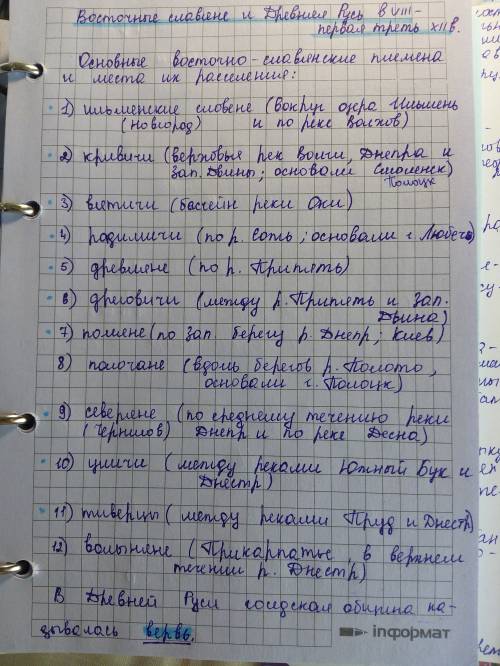 Восточные славяне и Древняя Русь в VIII-
первая треть XII в.
Основные восточно-славянские племена
и места их расселения:
1) ильменские словене (вокруг озера Ильмень
(Новгород) и по реке Волхов)
2) кривичи (верховья рек Волги, Днепра и
Зап. Двины; основали Смоленск)
Полоцк
3) вятичи (бассейн реки Оки)
4) радимичи (по р. Сожь; основали г. Любечь)
5) древляне (по р. Припять)
6) дреговичи (между р. Припять и Зап.
Двина)
7) поляне (по зап. берегу р. Днепр; Киев)
8) полочане (вдоль берегов р. Полота,
основали г. Полоцк)
9) северяне (по среднему течению реки
(Чернигов) Днепр и по реке Десна)
10) уличи (между реками Южный Буг и
Днестр)
11) тиверцы (между реками Пруд и Днестр)
12) волыняне (Прикарпатье, в верхнем
течении р. Днестр)
В Древней Руси соседская община на-
зывалась вервь.
інформат